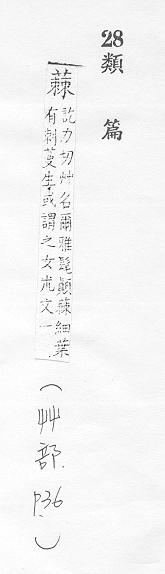 28 類篇
蕀 訖力切艸名爾雅髦顛蕀細葉
有刺蔓生或謂之女朮文一
(艸部. P.36)